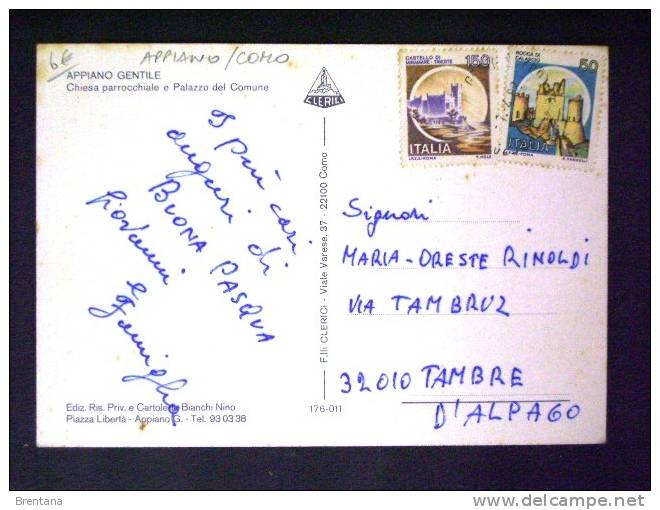 6€
APPIANO/COMO
APPIANO GENTILE
Chiesa parrocchiale e Palazzo del Comune
CLERICI
CASTELLO DI
MIRAMARE - TRIESTE
150
ITALIA
I.P.Z.S.-ROMA
ROCCA DI
CALASCIO
50
ITALIA
I più cari
auguri di
BUONA PASQUA
Giovanni e
Famiglia
F.lli CLERICI - Viale Varese, 37 - 22100 Como
Signori
MARIA-ORESTE RINOLDI
VIA TAMBRUZ
32010 TAMBRE
D'ALPAGO
Ediz. Ris. Priv. e Cartoleria Bianchi Nino
Piazza Libertà - Appiano G. - Tel. 93 03 38
176-011
Brentana
delcampe.net